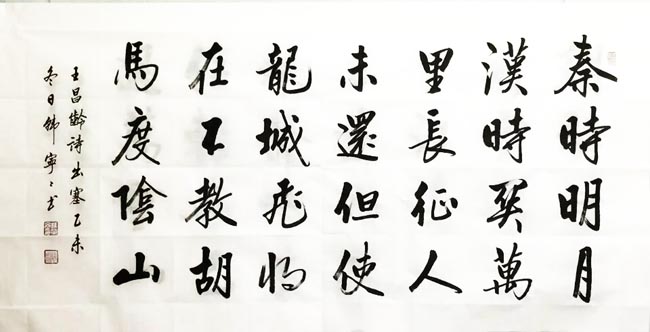 秦時明月
漢時關萬
里長征人
未還但使
龍城飛將
在不教胡
馬度陰山
王昌齡詩出塞乙未
冬日韩寧寧書